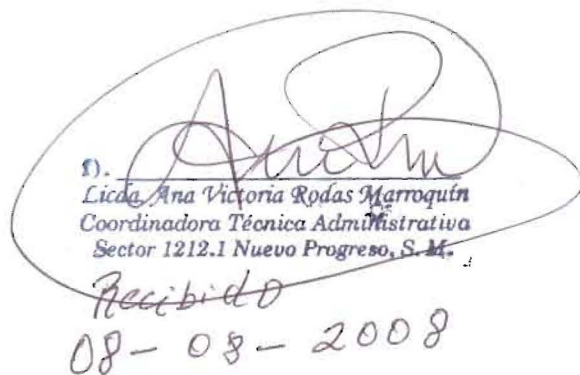 f).
Licda. Ana Victoria Rodas Marroquín
Coordinadora Técnica Administrativa
Sector 1212.1 Nuevo Progreso, S. M.
Recibido
08 - 08 - 2008